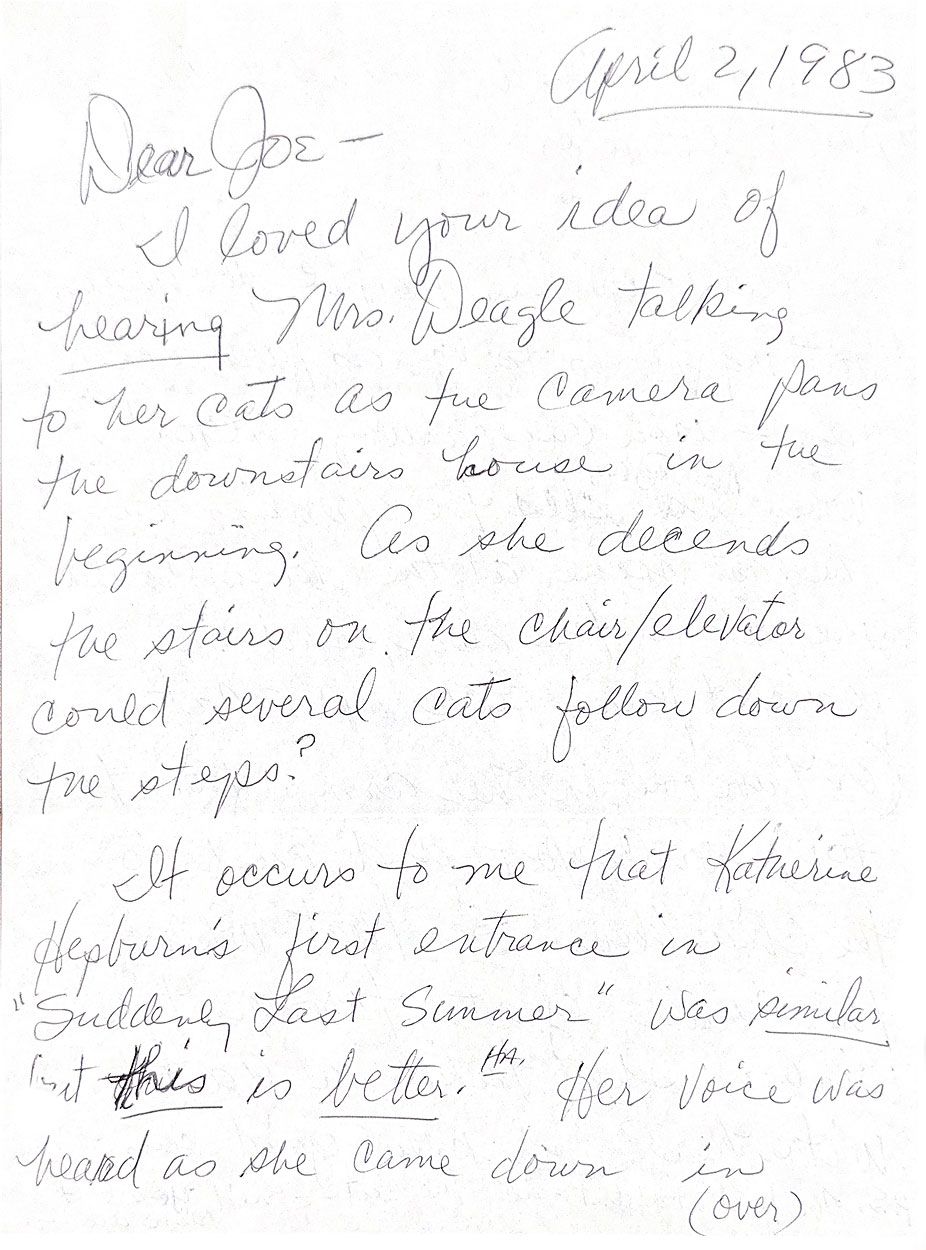 April 2, 1983
Dear Joe –
I loved your idea of
hearing Mrs. Deagle talking
to her cats as the camera pans
the downstairs house in the
beginning. As she decends
the stairs on the chair/elevator
could several cats follow down
the steps?
It occurs to me that Katherine
Hepburn's first entrance in
"Suddenly Last Summer" was similar
but this is better. HA. Her voice was
heard as she came down in
(over)